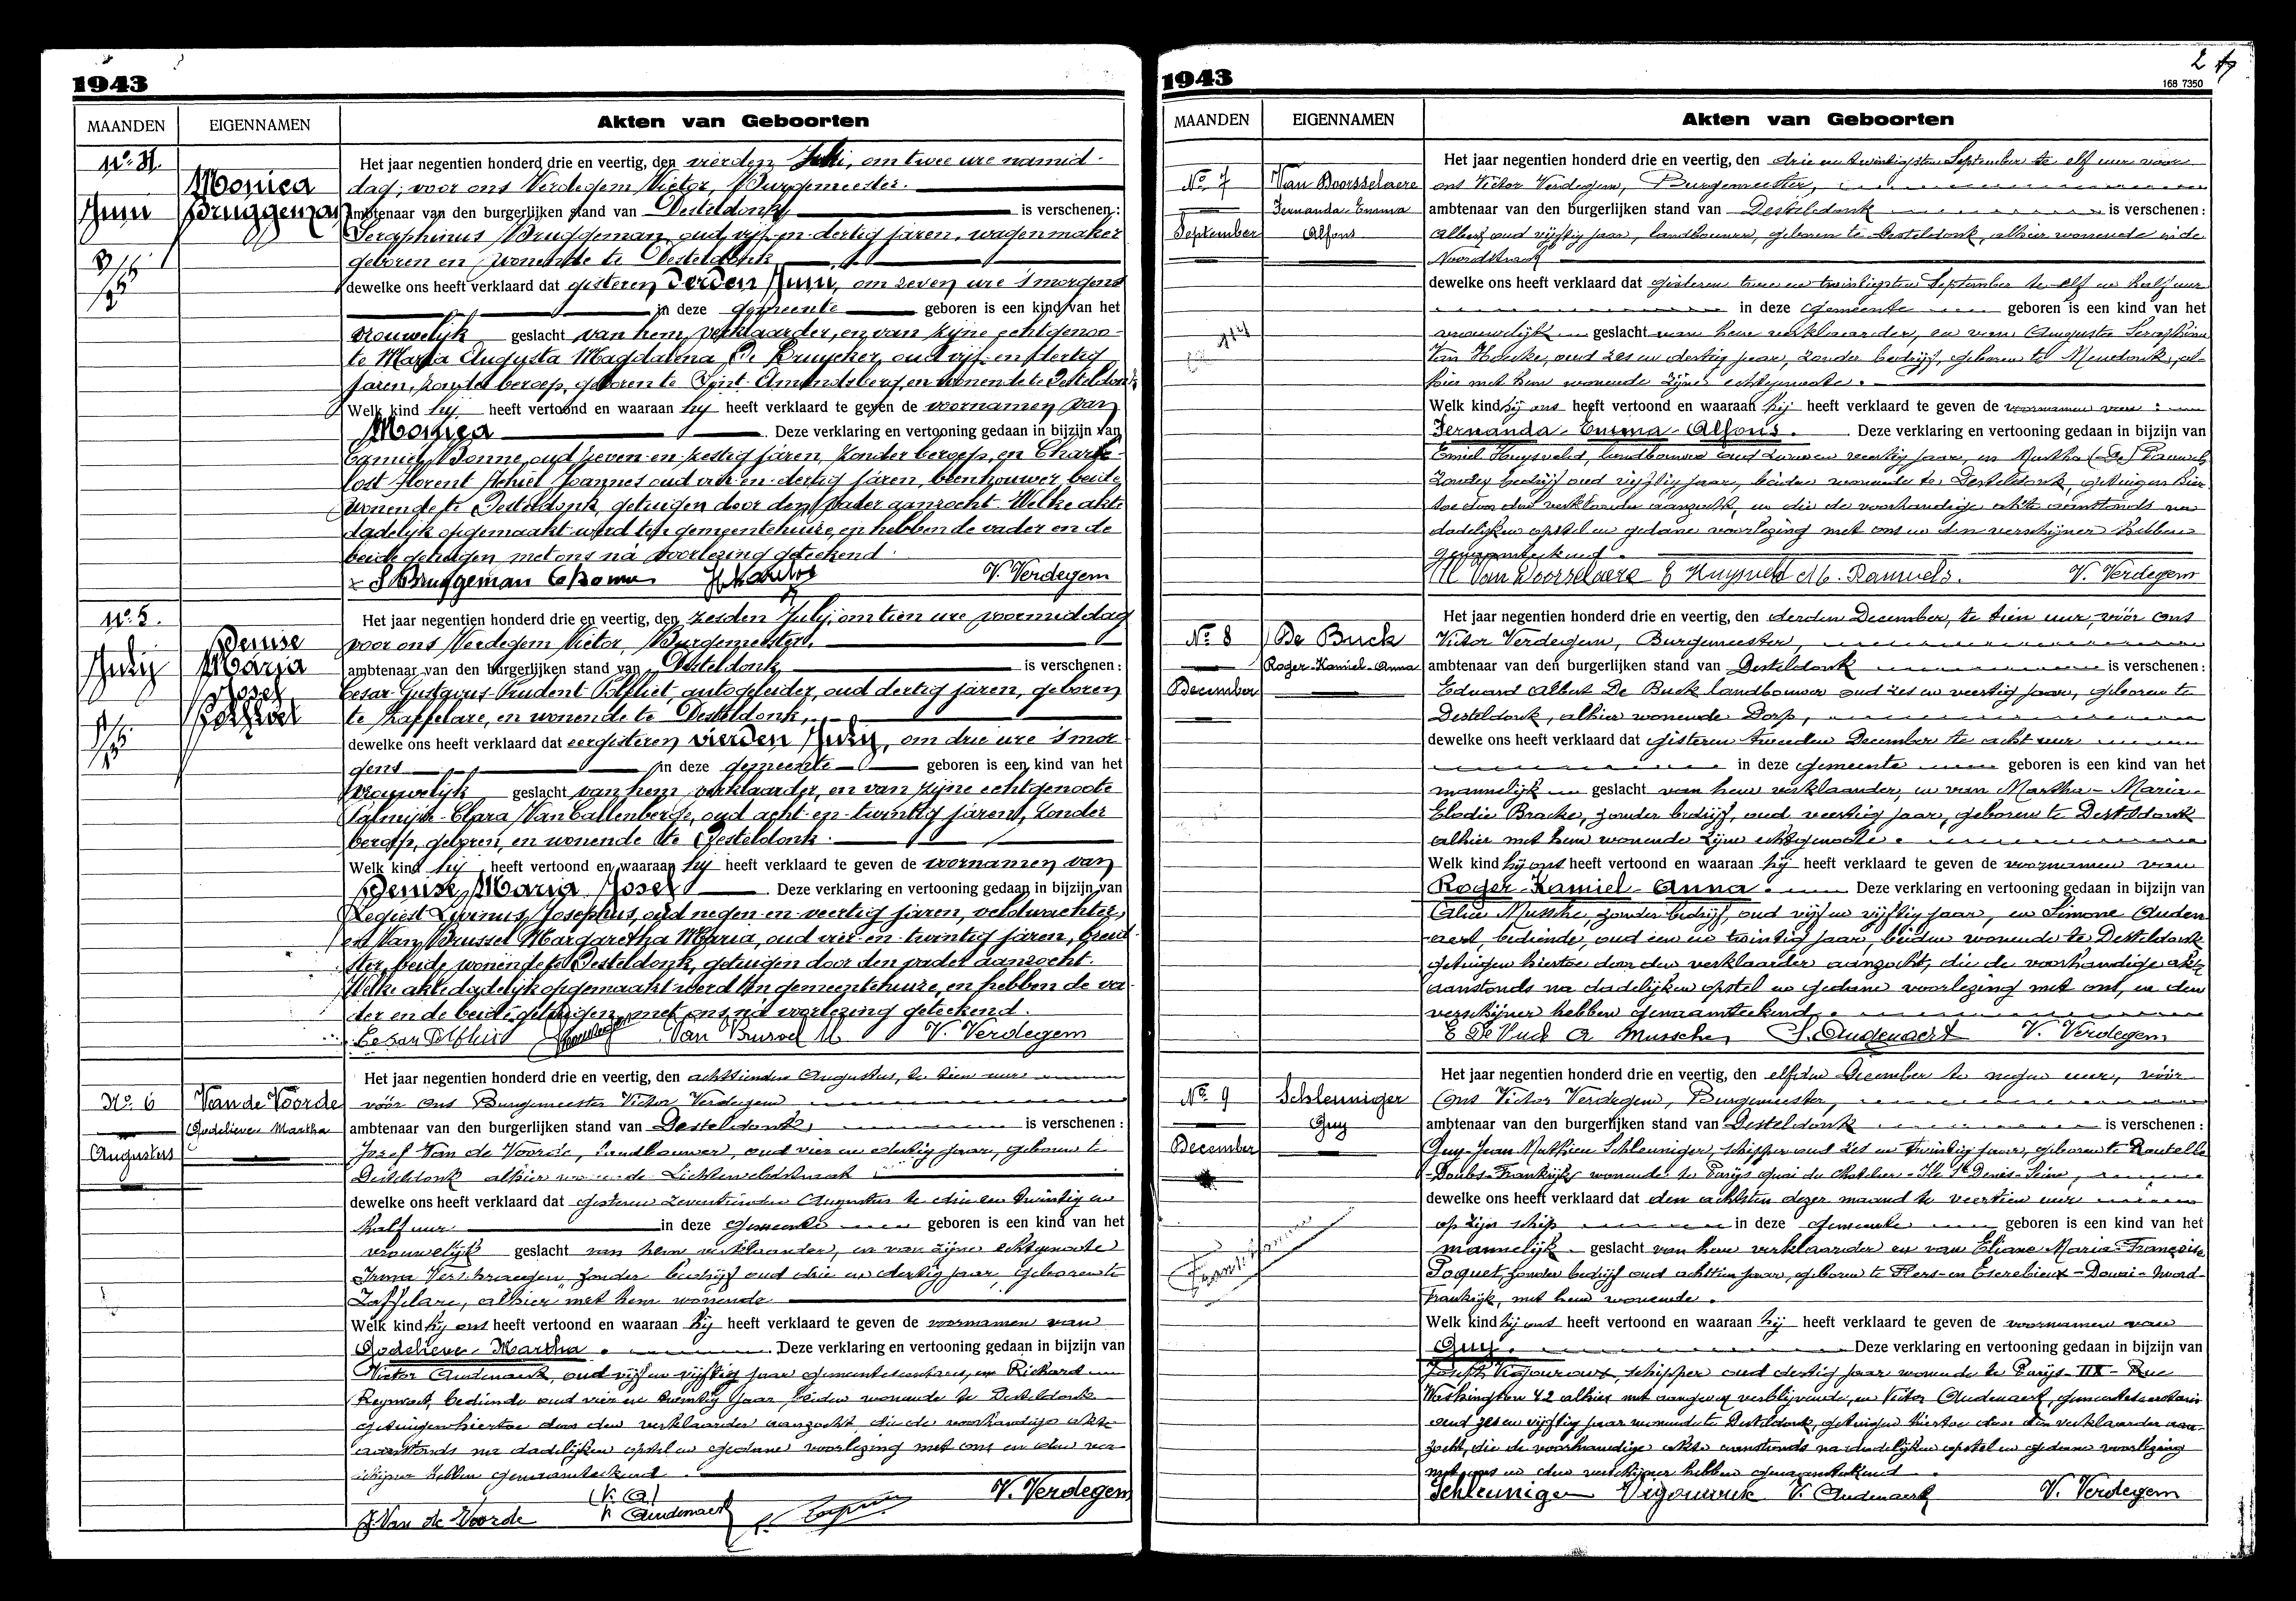 1943
MAANDEN
EIGENNAMEN
Akten van Geboorten
Het jaar negentien honderd drie en veertig, den vierden Juni, om twee ure namid-
dag, voor ons Verdegem Victor, Burgemeester.
ambtenaar van den burgerlijken stand van Desteldonk is verschenen:
Nº 4.
Monica
Bruggeman
Juni
Seraphinus Bruggeman, oud vijf-en-dertig jaren, wagenmaker
geboren en wonende te Desteldonk
dewelke ons heeft verklaard dat gisteren derden Juni, om zeven ure 's morgens
in deze gemeente geboren is een kind van het
vrouwelijk geslacht van hem, verklaarder, en van zijne echtgenoo-
te Maria Augusta Magdalena De Bruycker, oud vijf-en-dertig
jaren, zonder beroep, geboren te Sint-Amandsberg en wonende te Desteldonk
Welk kind hij heeft vertoond en waaraan hij heeft verklaard te geven de voornamen van
Monica Deze verklaring en vertooning gedaan in bijzijn van
Camiel Bonne, oud zeven-en-zestig jaren, zonder beroep, en
Florent Joannes oud vier-en-dertig jaren, beenhouwer, beide
wonende te Desteldonk, getuigen door den vader aanzocht. Welke akte
dadelijk opgemaakt werd ten gemeentehuize, en hebben de vader en de
beide getuigen, met ons na voorlezing geteekend.
S Bruggeman C Bonne V. Verdegem
Nº 5.
July
Denise
Maria
Josef
Polfliet
Het jaar negentien honderd drie en veertig, den zesden July, om tien ure voormiddag
voor ons Verdegem Victor, Burgemeester.
ambtenaar van den burgerlijken stand van Desteldonk is verschenen:
Cesar Gustavus Prudent Polfliet, autogeleider, oud dertig jaren, geboren
te Zaffelare, en wonende te Desteldonk,
dewelke ons heeft verklaard dat eergisteren vierden July, om drie ure 's mor
gens in deze gemeente geboren is een kind van het
vrouwelijk geslacht van hem, verklaarder, en van zijne echtgenoote
Clara Van Callenberge, oud acht-en-twintig jaren, zonder
beroep, geboren, en wonende te Desteldonk.
Welk kind hij heeft vertoond en waaraan hij heeft verklaard te geven de voornamen van
Denise, Maria Josef Deze verklaring en vertooning gedaan in bijzijn van
Regiest Livinus Josephus, oud negen-en-veertig jaren, veldwachter,
en Van Brussel Margaretha Maria, oud vier-en-twintig jaren, breid-
ster, beide wonende te Desteldonk, getuigen door den vader aanzocht.
Welke akte dadelijk opgemaakt werd ten gemeentehuize, en hebben de va-
der en de beide getuigen, met ons na voorlezing geteekend.
Cesar Polfliet Van Brussel M V. Verdegem
Nº 6
Augustus
Van de Voorde
Godelieve Martha
Het jaar negentien honderd drie en veertig, den achttienden Augustus, te tien ure
vóór ons Burgemeester Victor Verdegem
ambtenaar van den burgerlijken stand van Desteldonk, is verschenen:
Jozef Van de Voorde, landbouwer, oud vier en dertig jaar, geboren te
Desteldonk alhier wonende Lichtenveldestraat
dewelke ons heeft verklaard dat gisteren zeventienden Augustus te drie en twintig en
half uur in deze gemeente geboren is een kind van het
vrouwelijk geslacht van hem verklaarder, en van zijne echtgenoote
Irma Verschraegen, zonder bedrijf oud drie en dertig jaar, geboren te
Zaffelare, alhier met hem wonende
Welk kind hij ons heeft vertoond en waaraan hij heeft verklaard te geven de voornamen van
Godelieve-Martha. Deze verklaring en vertooning gedaan in bijzijn van
Victor Audenaert, oud vijf en vijftig jaar gemeentesecretaris, en Richard
bediende oud vier en twintig jaar, beiden wonende te Desteldonk
getuigen hiertoe door den verklaarder aanzocht die de voorhandige akte
aanstonds na dadelijken opstel en gedane voorlezing met ons en den ver-
schijner hebben genaamteekend.
J. Van de Voorde (V. A) V. Audenaert V. Verdegem
1943
168 7350
MAANDEN
EIGENNAMEN
Akten van Geboorten
Nº 7
September
Van Doorsselaere
Fernanda-Emma
Alfons
Het jaar negentien honderd drie en veertig, den drie en twintigsten September te elf uur voor
ons Victor Verdegem, Burgemeester,
ambtenaar van den burgerlijken stand van Desteldonk is verschenen:
Albert oud vijftig jaar, landbouwer, geboren te Desteldonk, alhier wonende in de
Noordstraat
dewelke ons heeft verklaard dat gisteren twee en twintigsten September te elf en half uur
in deze gemeente geboren is een kind van het
vrouwelijk geslacht van hem verklaarder, en van Augusta Seraphina
Van Hoecke, oud zes en dertig jaar, zonder bedrijf, geboren te Mendonk, al-
hier met hem wonende zijne echtgenoote.
Welk kind hij ons heeft vertoond en waaraan hij heeft verklaard te geven de voornamen van:
Fernanda-Emma-Alfons. Deze verklaring en vertooning gedaan in bijzijn van
Emiel Huysveld, landbouwer oud veertig jaar, en Martha (De) Pauwels
zonder bedrijf oud vijftig jaar, beiden wonende te Desteldonk, getuigen hier-
toe door den verklaarder aanzocht, en die de voorhandige akte aanstonds na
dadelijken opstel en gedane voorlezing met ons en den verschijner hebben
genaamteekend.
A Van Doorselaere E Huysveld M. Pauwels. V. Verdegem
Nº 8
December
De Buck
Roger-Kamiel-Anna
Het jaar negentien honderd drie en veertig, den derden December, te tien uur, vóór ons
Victor Verdegem, Burgemeester,
ambtenaar van den burgerlijken stand van Desteldonk is verschenen:
Eduard Albert De Buck landbouwer oud zes en veertig jaar, geboren te
Desteldonk, alhier wonende Dorp,
dewelke ons heeft verklaard dat gisteren tweeden December te acht uur
in deze gemeente geboren is een kind van het
mannelijk geslacht van hem verklaarder, en van Martha-Maria-
Elodie Bracke, zonder bedrijf, oud veertig jaar, geboren te Desteldonk
alhier met hem wonende zijne echtgenoote.
Welk kind hij ons heeft vertoond en waaraan hij heeft verklaard te geven de voornamen van
Roger-Kamiel-Anna. Deze verklaring en vertooning gedaan in bijzijn van
Alice Mussche, zonder bedrijf, oud vijf en vijftig jaar, en Simone Auden-
aert, bediende, oud een en twintig jaar, beiden wonende te Desteldonk
getuigen hiertoe door den verklaarder aanzocht, die de voorhandige akte
aanstonds na dadelijken opstel en gedane voorlezing met ons, en den
verschijner hebben genaamteekend.
E De Buck A Mussche S. Audenaert V. Verdegem
Nº 9
December
Schleuniger
Guy
Het jaar negentien honderd drie en veertig, den elfden December te negen uur, vóór
Ons Victor Verdegem, Burgemeester,
ambtenaar van den burgerlijken stand van Desteldonk is verschenen:
Guy-Jean Mathieu Schleuniger, schipper oud zes en twintig jaar, geboren te
-Doubs-Frankrijk, wonende te Parijs quai du Chatelier-Ile St Denis-Seine,
dewelke ons heeft verklaard dat den achtsten dezer maand te veertien uur
op zijn schip in deze gemeente geboren is een kind van het
mannelijk geslacht van hem verklaarder en van Eliane-Maria-Françoise
Poquet, zonder bedrijf oud achttien jaar, geboren te Flers-en Escrebieux-Douai-Noord-
Frankrijk, met hem wonende.
Welk kind hij ons heeft vertoond en waaraan hij heeft verklaard te geven de voornamen van
Guy. Deze verklaring en vertooning gedaan in bijzijn van
Joseph schipper oud dertig jaar wonende te Parijs-Rue
Washington 42 alhier met aangever verblijvende, en Victor Audenaert, gemeentesecretaris
oud zes en vijftig jaar wonende te Desteldonk, getuigen hiertoe door den verklaarder aan-
zocht, die de voorhandige akte aanstonds na dadelijken opstel en gedane voorlezing
met ons en den verschijner hebben genaamteekend.
Schleuniger V. Audenaert V. Verdegem